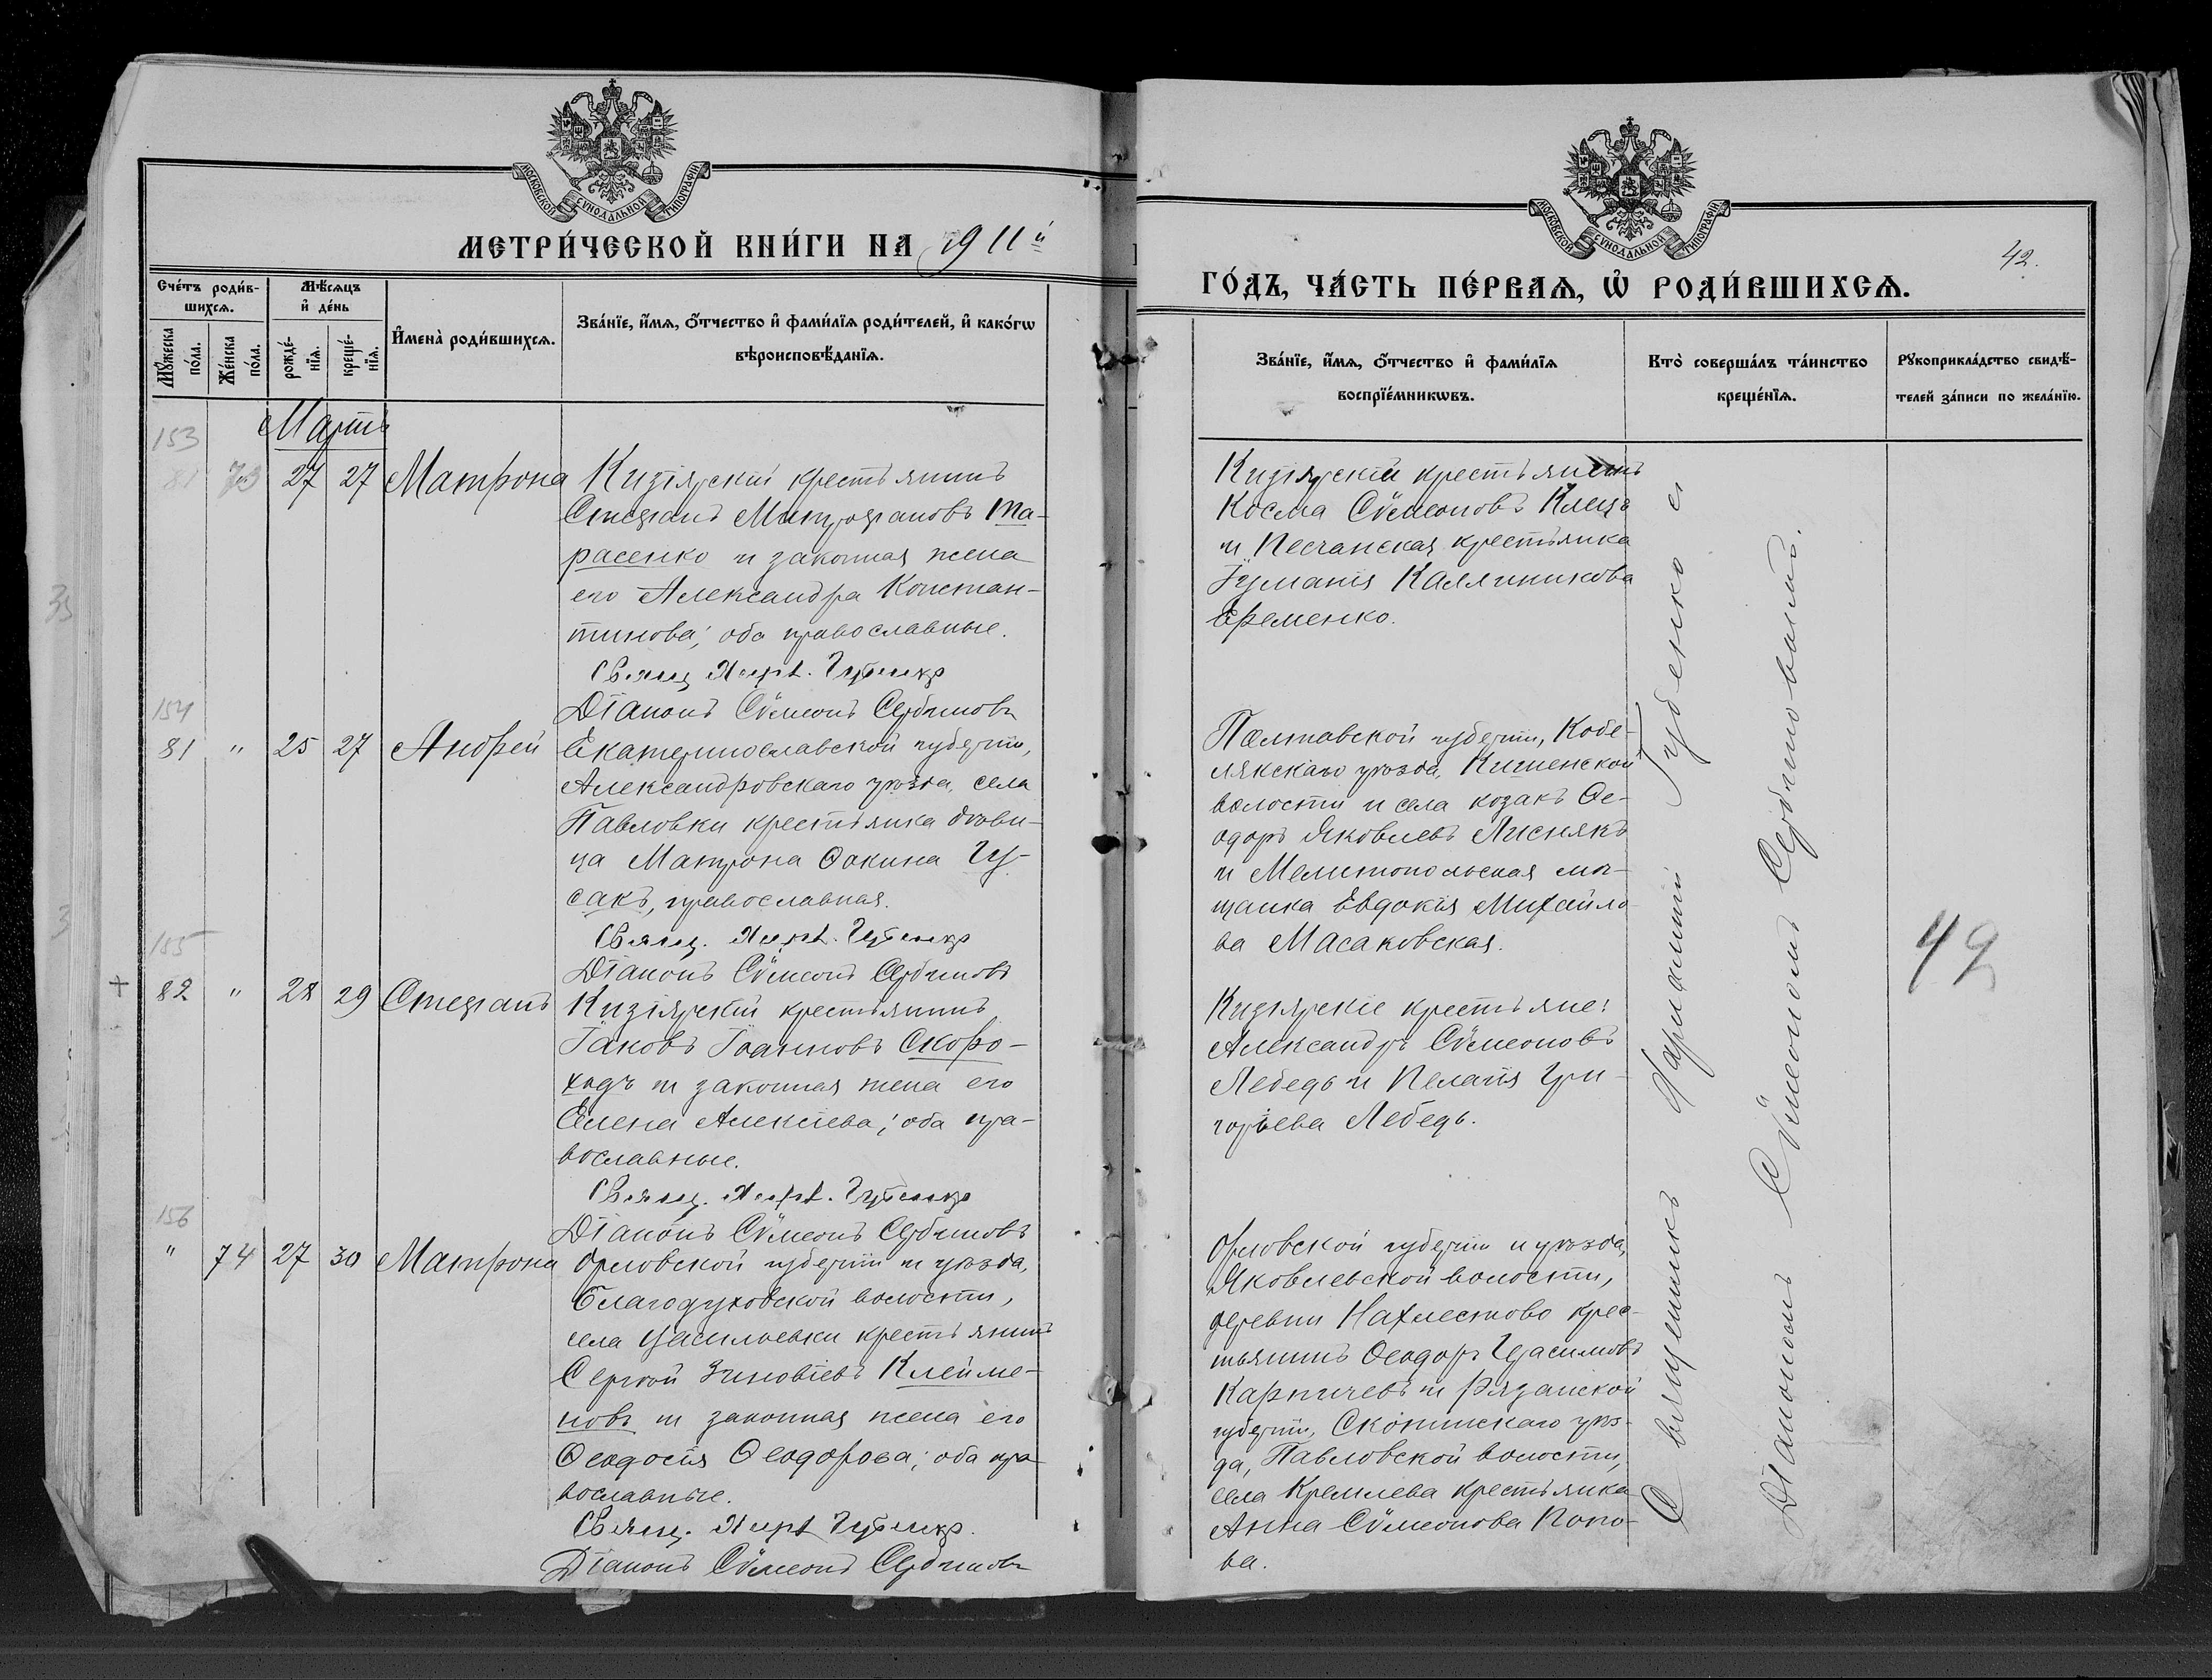 МОСКОВСКОЙ СѴНОДАЛЬНОЙ ТИПОГРАФІИ
МЕТРИ́ЧЕСКОЙ КНИ́ГИ НА 1911й
Сче́тъ роди́в-
шихсѧ.
Мѣ́сѧцъ
и҆ де́нь
Мꙋ́жеска
по́ла.
Же́нска
по́ла.
рожде́-
нїѧ.
креще́-
нїѧ.
И҆мена̀ роди́вшихсѧ.
Зва́нїе, и҆́мѧ, ѻ҆́тчество и҆ фами́лїѧ роди́телей, и҆ како́гѡ
вѣроисповѣ́данїѧ.
Мартъ
153
81 73 27 27 Матрона Кизіярскій крестьянинъ
Стефанъ Митрофановъ Та-
расенко и законная жена
его Александра Констан-
тинова; оба православные.
Свящ. Харл. Губенко
Діаконъ Сѵмеонъ Сербиновъ
154
81 " 25 27 Андрей Екатеринославской губерніи,
Александровскаго уѣзда, села
Павловки крестьянка дѣви-
ца Матрона Ѳокина Гу-
сакъ, православная.
Свящ. Харл. Губенко
Діаконъ Сѵмеонъ Сербиновъ
155
+ 82 " 28 29 Стефанъ Кизіярскій крестьянинъ
Іаковъ Іоанновъ Скоро-
ходъ и законная жена его
Елена Алексіева; оба пра-
вославные.
Свящ. Харл. Губенко
Діаконъ Сѵмеонъ Сербиновъ
156
" 74 27 30 Матрона Орловской губерніи и уѣзда,
Благодуховской волости,
села Васильевки крестьянинъ
Сергѣй Зиновіевъ Клейме-
новъ и законная жена его
Ѳеодосія Ѳеодорова; оба пра-
вославные.
Свящ. Харл. Губенко.
Діаконъ Сѵмеонъ Сербиновъ
МОСКОВСКОЙ СѴНОДАЛЬНОЙ ТИПОГРАФІИ
42.
ГО́ДЪ, ЧА́СТЬ ПЕ́РВАѦ, Ѡ҆ РОДИ́ВШИХСѦ.
Зва́нїе, и҆́мѧ, ѻ҆́тчество и҆ фами́лїѧ
воспрїе́мникѡвъ.
Кто̀ соверша́лъ та́инство
креще́нїѧ.
Рꙋкоприкла́дство свидѣ́-
телей за́писи по жела́нїю.
Кизіярскій крестьянинъ
Косма Сѵмеоновъ Клецъ
и Песчанская крестьянка
Іуліанія Каллиникова
Еременко.
Полтавской губерніи, Кобе-
лякскаго уѣзда, Кишенской
волости и села козакъ Ѳе-
одоръ Яковлевъ Лиснякъ
и Мелитопольская мѣ-
щанка Евдокія Михайло-
ва Масаковская.
Кизіярскіе крестьяне:
Александръ Сѵмеоновъ
Лебедь и Пелагія Гри-
горьева Лебедь.
Орловской губерніи и уѣзда,
Яковлевской волости,
деревни Нахлестово крес-
тьянинъ Ѳеодоръ Герасимовъ
Карпичевъ и Рязанской
губерніи, Скопинскаго уѣз-
да, Павловской волости,
села Кремлева крестьянка
Анна Сѵмеонова Попо-
ва.
Священникъ Харлампій Губенко съ
Діакономъ Сѵмеономъ Сербиновымъ.
42